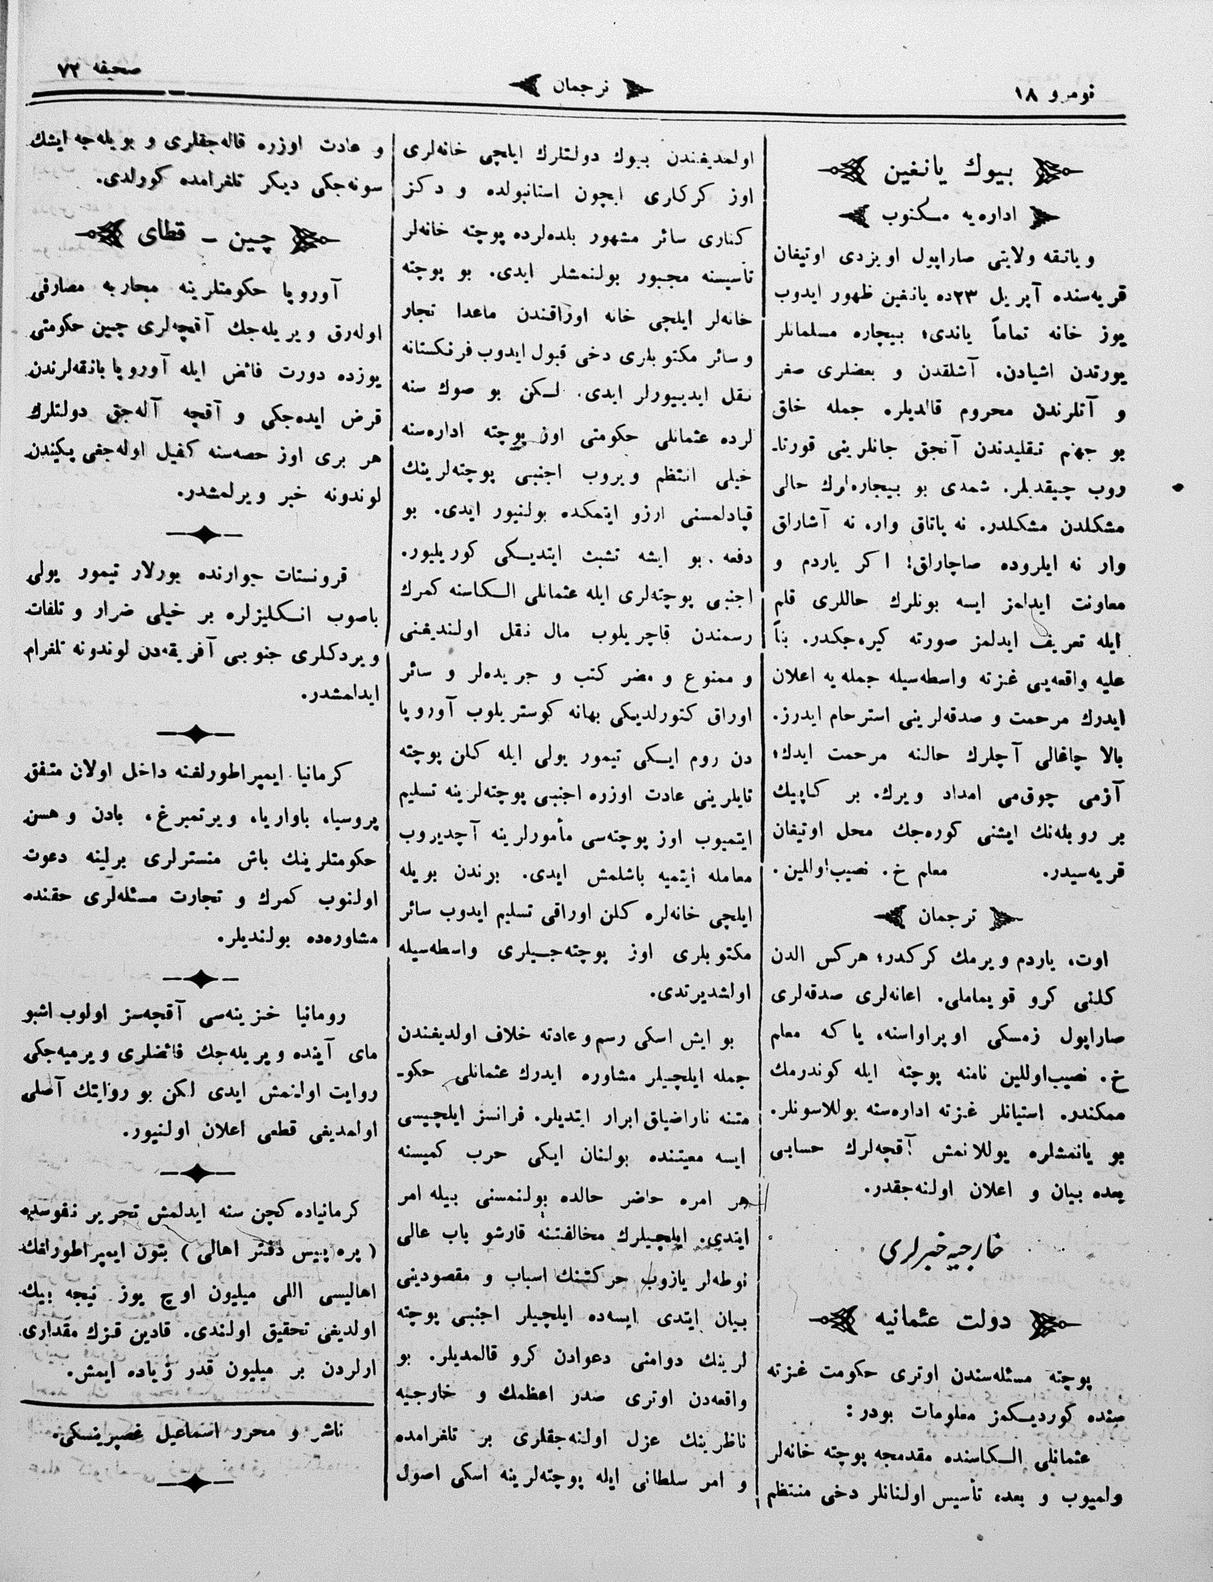 نومرو ۱۸
ترجمان
صحیفه ۷۲
بیوك یانغین
اداره‌یه مكتوب
ویاتقه ولایتی صاراپول اویزدی اوتیفان
قریه‌سنده آپریل ۲۳ده یانغین ظهور ایدوب
یوز خانه تماماً یاندی؛ بیچاره مسلمانلر
یورتدن اشیادن، آشلقدن و بعضلری صغر
و آتلرندن محروم قالدیلر. جمله خلق
بو جهنم تیقلیدندن آنجق جانلرینی قورتا-
روب چیقدیلر. شمدی بو بیچاره‌لرك حالی
مشكلدن مشكلدر. نه یاتاق وار، نه آشاراق
وار نه ایلروده صاچاراق! اكر یاردم و
معاونت ایدلمز ایسه بونلرك حاللری قلم
ایله تعریف ایدلمز صورته كیره‌جكدر. بناً
علیه واقعه‌یی غزته واسطه‌سیله جمله‌یه اعلان
ایدرك مرحمت و صدقه‌لرینی استرحام ایدرز.
بالا چاغالی آچلرك حالنه مرحمت ایدك؛
آزمی چوق‌می امداد ویرك. بر كاپیك
بر روبله‌نك ایشنی كوره‌جك محل اوتیفان
قریه‌سیدر. معلم خ. نصیب‌اوللین.
ترجمان
اوت، یاردم ویرمك كركدر؛ هركس الدن
كلنی كرو قویماملی. اعانه‌لری صدقه‌لری
صاراپول زمسكی اوپراواسنه، یا كه معلم
خ. نصیب‌اوللین نامنه پوچته ایله كوندرمك
ممكندر. استیانلر غزته اداره‌سنه یوللاسونلر.
بو یانمشلره یوللانمش آقچه‌لرك حسابی
بعده بیان و اعلان اولنه‌جقدر.
خارجیه خبرلری
دولت عثمانیه
پوچته مسئله‌سندن اوتری حكومت غزته
سنده كوردیكمز معلومات بودر:
عثمانلی الكاسنده مقدمجه پوچته خانه‌لر
ولمیوب و بعده تأسیس اولنانلر دخی منتظم
اولمدیغندن بیوك دولتلرك ایلچی خانه‌لری
اوز كركاری ایچون استانبولده و دكز
كناری سائر مشهور بلده‌لرده پوچته خانه‌لر
تأسیسنه مجبور بولنمشلر ایدی. بو پوچته
خانه‌لر ایلچی خانه اوراقندن ماعدا تجار
و سائر مكتوبلری دخی قبول ایدوب فرنكستانه
نقل ایدییورلر ایدی. لكن بو صوك سنه
لرده عثمانلی حكومتی اوز پوچته اداره‌سنه
خیلی انتظم ویروب اجنبی پوچته‌لرینك
قپادلمسنی ارزو ایتمكده بولنیور ایدی. بو
دفعه بو ایشه تشبث ایتدیكی كوریلیور.
اجنبی پوچته‌لری ایله عثمانلی الكاسنه كمرك
رسمندن قاچریلوب مال نقل اولندیغنی
و ممنوع و مضر كتب و جریده‌لر و سائر
اوراق كتورلدیكی بهانه كوستریلوب آوروپا
دن روم ایكی تیمور یولی ایله كلن پوچته
تایلرینی عادت اوزره اجنبی پوچته‌لرینه تسلیم
ایتمیوب اوز پوچته‌سی مأمورلرینه آچدیروب
معامله ایتمیه باشلمش ایدی. بوندن بویله
ایلچی خانه‌لره كلن اوراقی تسلیم ایدوب سائر
مكتوبلری اوز پوچته‌جیلری واسطه‌سیله
اولشدیرتدی.
بو ایش اسكی رسم و عادته خلاف اولدیغندن
جمله ایلچیلر مشاوره ایدرك عثمانلی حكو-
متنه ناراضیلق ابرار ایتدیلر. فرانسز ایلچیسی
ایسه معیتنده بولنان ایكی حرب كمیسنه
هر امره حاضر حالده بولنمسنی بیله امر
ایتدی. ایلچیلرك مخالفتنه قارشو باب عالی
نوطه‌لر یازوب حركتنك اسباب و مقصودینی
بیان ایتدی ایسه‌ده ایلچیلر اجنبی پوچته
لرینك دوامنی دعوادن كرو قالمدیلر. بو
واقعه‌دن اوتری صدر اعظمك و خارجیه
ناظرینك عزل اولنه‌جقلری بر تلغرامده
و امر سلطانی ایله پوچته‌لرینه اسكی اصول
و عادت اوزره قاله‌جقلری و بویله‌جه ایشك
سونه‌جكی دیكر تلغرامده كورلدی.
چین - قطای
آوروپا حكومتلرینه مجاربه مصارفی
اوله‌رق ویریله‌جك آقچه‌لری چین حكومتی
یوزده دورت فائض ایله آوروپا بانقه‌لرندن
قرض ایده‌جكی و آقچه آله‌جق دولتلرك
هر بری اوز حصه‌سنه كفیل اوله‌جغی پكیندن
لوندونه خبر ویرلمشدر.
قرونستات جوارنده بورلار تیمور یولی
باصوب انكلیزلره بر خیلی ضرار و تلفات
ویردكلری جنوبی آفریقه‌دن لوندونه تلغرام
ایدلمشدر.
كرمانیا ایمپراطورلغنه داخل اولان متفق
پروسیا، باواریا، ویرتمبرغ، بادن و هسن
حكومتلرینك باش منسترلری برلینه دعوت
اولنوب كمرك و تجارت مسئله‌لری حقنده
مشاوره‌ده بولندیلر.
رومانیا خزینه‌سی آقچه‌سز اولوب اشبو
مای آینده ویریله‌جك فائضلری ویرمیه‌جكی
روایت اولنمش ایدی لكن بو روایتك آصلی
اولمدیغی قطعی اعلان اولنیور.
كرمانیاده كچن سنه ایدلمش تحریر نفوسده
(پره‌پیس دفتر اهالی) بتون ایمپراطورلغك
اهالیسی اللی میلیون اوچ یوز نیجه بیك
اولدیغی تحقیق اولندی. قادین قزك مقداری
ارلردن بر میلیون قدر زیاده ایمش.
ناشر و محرر اسماعیل غصپرینسكی.